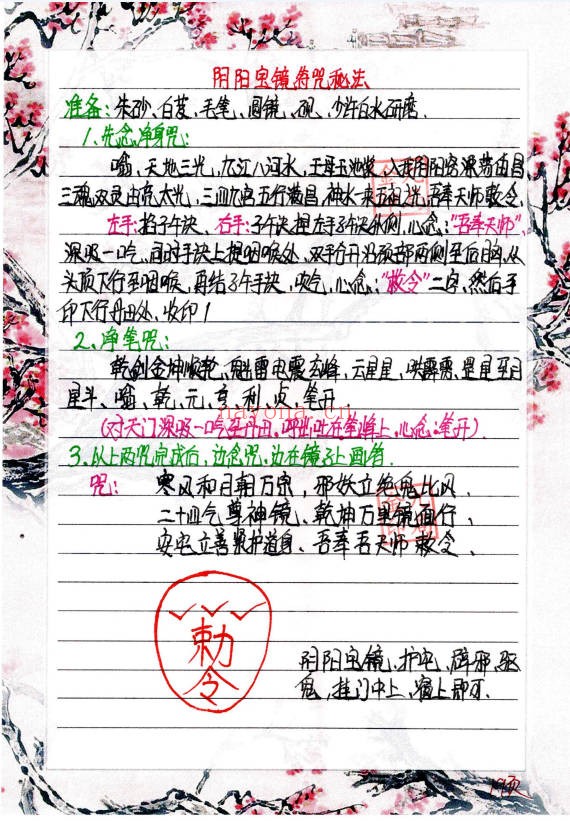 阴阳宝镜符咒秘法
准备：朱砂、白芨、毛笔、圆镜、砚、少许白水研磨.
1、先念净身咒：
嗡、天地三光，九江八河水，王母玉池浆、入我阴阳
三魂双灵由亮太光，三四九宫五行 昌，神水来 ，吾奉天师敕令
左手：掐子午决、右手：子午决捏左手 ，心念："吾奉天师"，
深吸一吃，同时手决上提咽喉处，双手分开沿颈部两侧至后脑，从
头顶下行至咽喉，再结子午手抉，吹气，心念："敕令"二字，然后手
印下行丹田处、收印！
2、净笔咒：
乾剑金坤顺乾， 雷电震玄峰，云星星、 露雳、 星 至日
星斗、嗡、乾、元、亨、利、贞，笔开
nayona.cn
（对天门深吸一吃至丹田，呼出吐在笔 上，心念：笔开）
3、以上两咒完成后，边念咒，边在镜子上画符.
咒： 寒风和日朝万宗，邪妖立绝鬼 风.
二十四气尊神镜、乾坤万里镜面行、
安 立善 护道身、吾奉吾天师敕令、
勅
令
阴阳宝镜、护宅、辟邪、驱
鬼，挂门中上、窗上即可.
19页